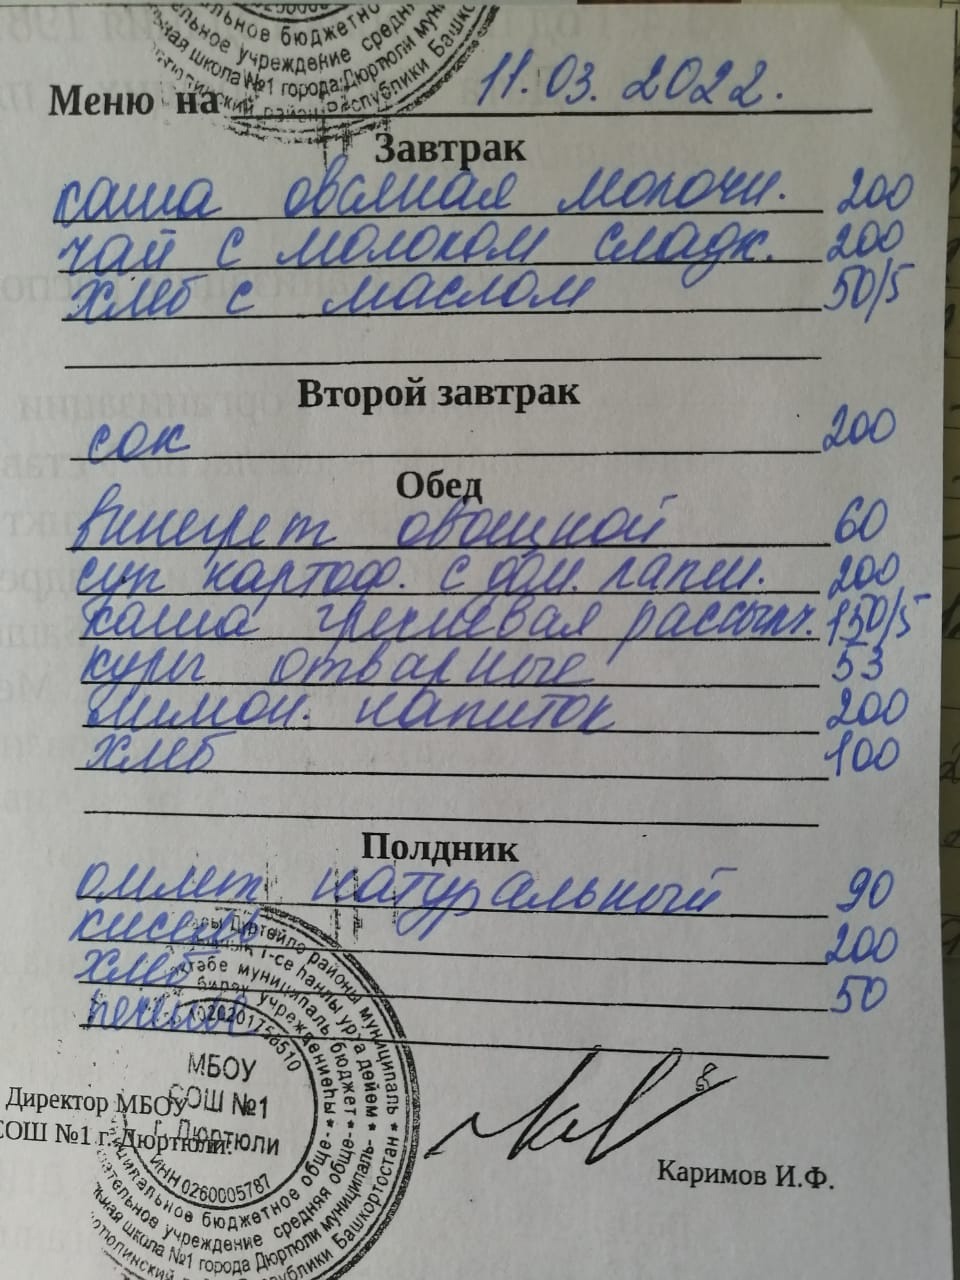 льное бюджетно
учреждение средн
ьная школа №1 города Дюртюли мун
Республики Башко
Меню на 11.03.2022.
Завтрак
каша овсяная молочн. 200
чай с молоком сладк. 200
хлеб с маслом 50/5
Второй завтрак
сок 200
Обед
винегрет овощной 60
суп картоф. с дом. лапш. 200
каша гречневая рассыпч. 150/5
куры отварные 53
лимон. напиток 200
хлеб 100
Полдник
омлет натуральный 90
кисель 200
хлеб 50
печенье
МБОУ
СОШ №1
г. Дюртюли
ИНН 0260005787
Директор МБОУ
СОШ №1 г. Дюртюли:
Каримов И.Ф.